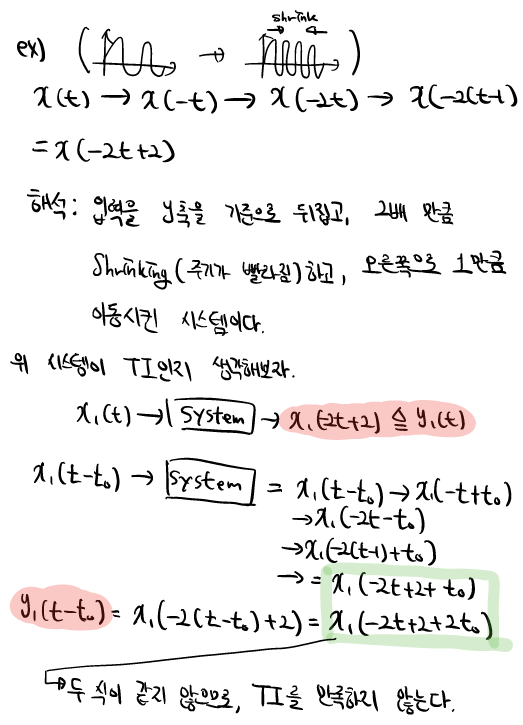 shrink
ex) ( → )
x(t) → x(-t) → x(-2t) → x(-2(t-1)
= x(-2t+2)
해석: 입력을 y축을 기준으로 뒤집고, 2배 만큼
Shrinking(주기가 빨라짐)하고, 오른쪽으로 1만큼
이동시킨 시스템이다.
위 시스템이 TI인지 생각해보자.
x₁(t) → System → x₁(-2t+2) ≜ y₁(t)
x₁(t-t₀) → System = x₁(t-t₀) → x₁(-t+t₀)
→ x₁(-2t-t₀)
→ x₁(-2(t-1)+t₀)
→ = x₁(-2t+2+t₀)
y₁(t-t₀) = x₁(-2(t-t₀)+2) = x₁(-2t+2+2t₀)
↳ 두 식이 같지 않으므로, TI를 만족하지 않는다.